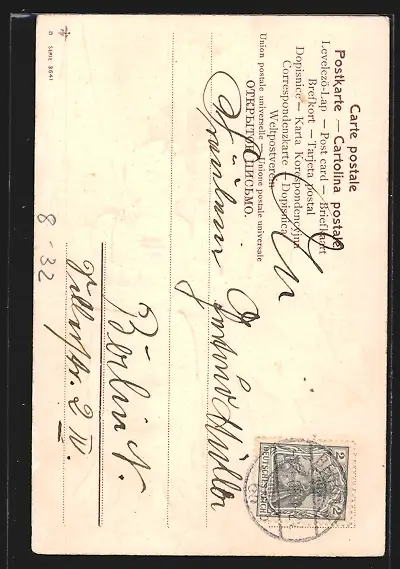 Carte postale
Postkarte — Cartolina postale
Levelező-Lap — Post card — Briefkaart
Brefkort — Tarjeta postal
Dopisnice — Karta Korespondencyjna
Correspondenzkarte — Dopisnica
Weltpostverein
ОТКРЫТОЕ ПИСЬМО.
Union postale universelle — Unione postale universale
An
Fräulein
Müller
Berlin N.
2 IV.
8-32
B SERIE 8641
2 2
DEUTSCHES REICH